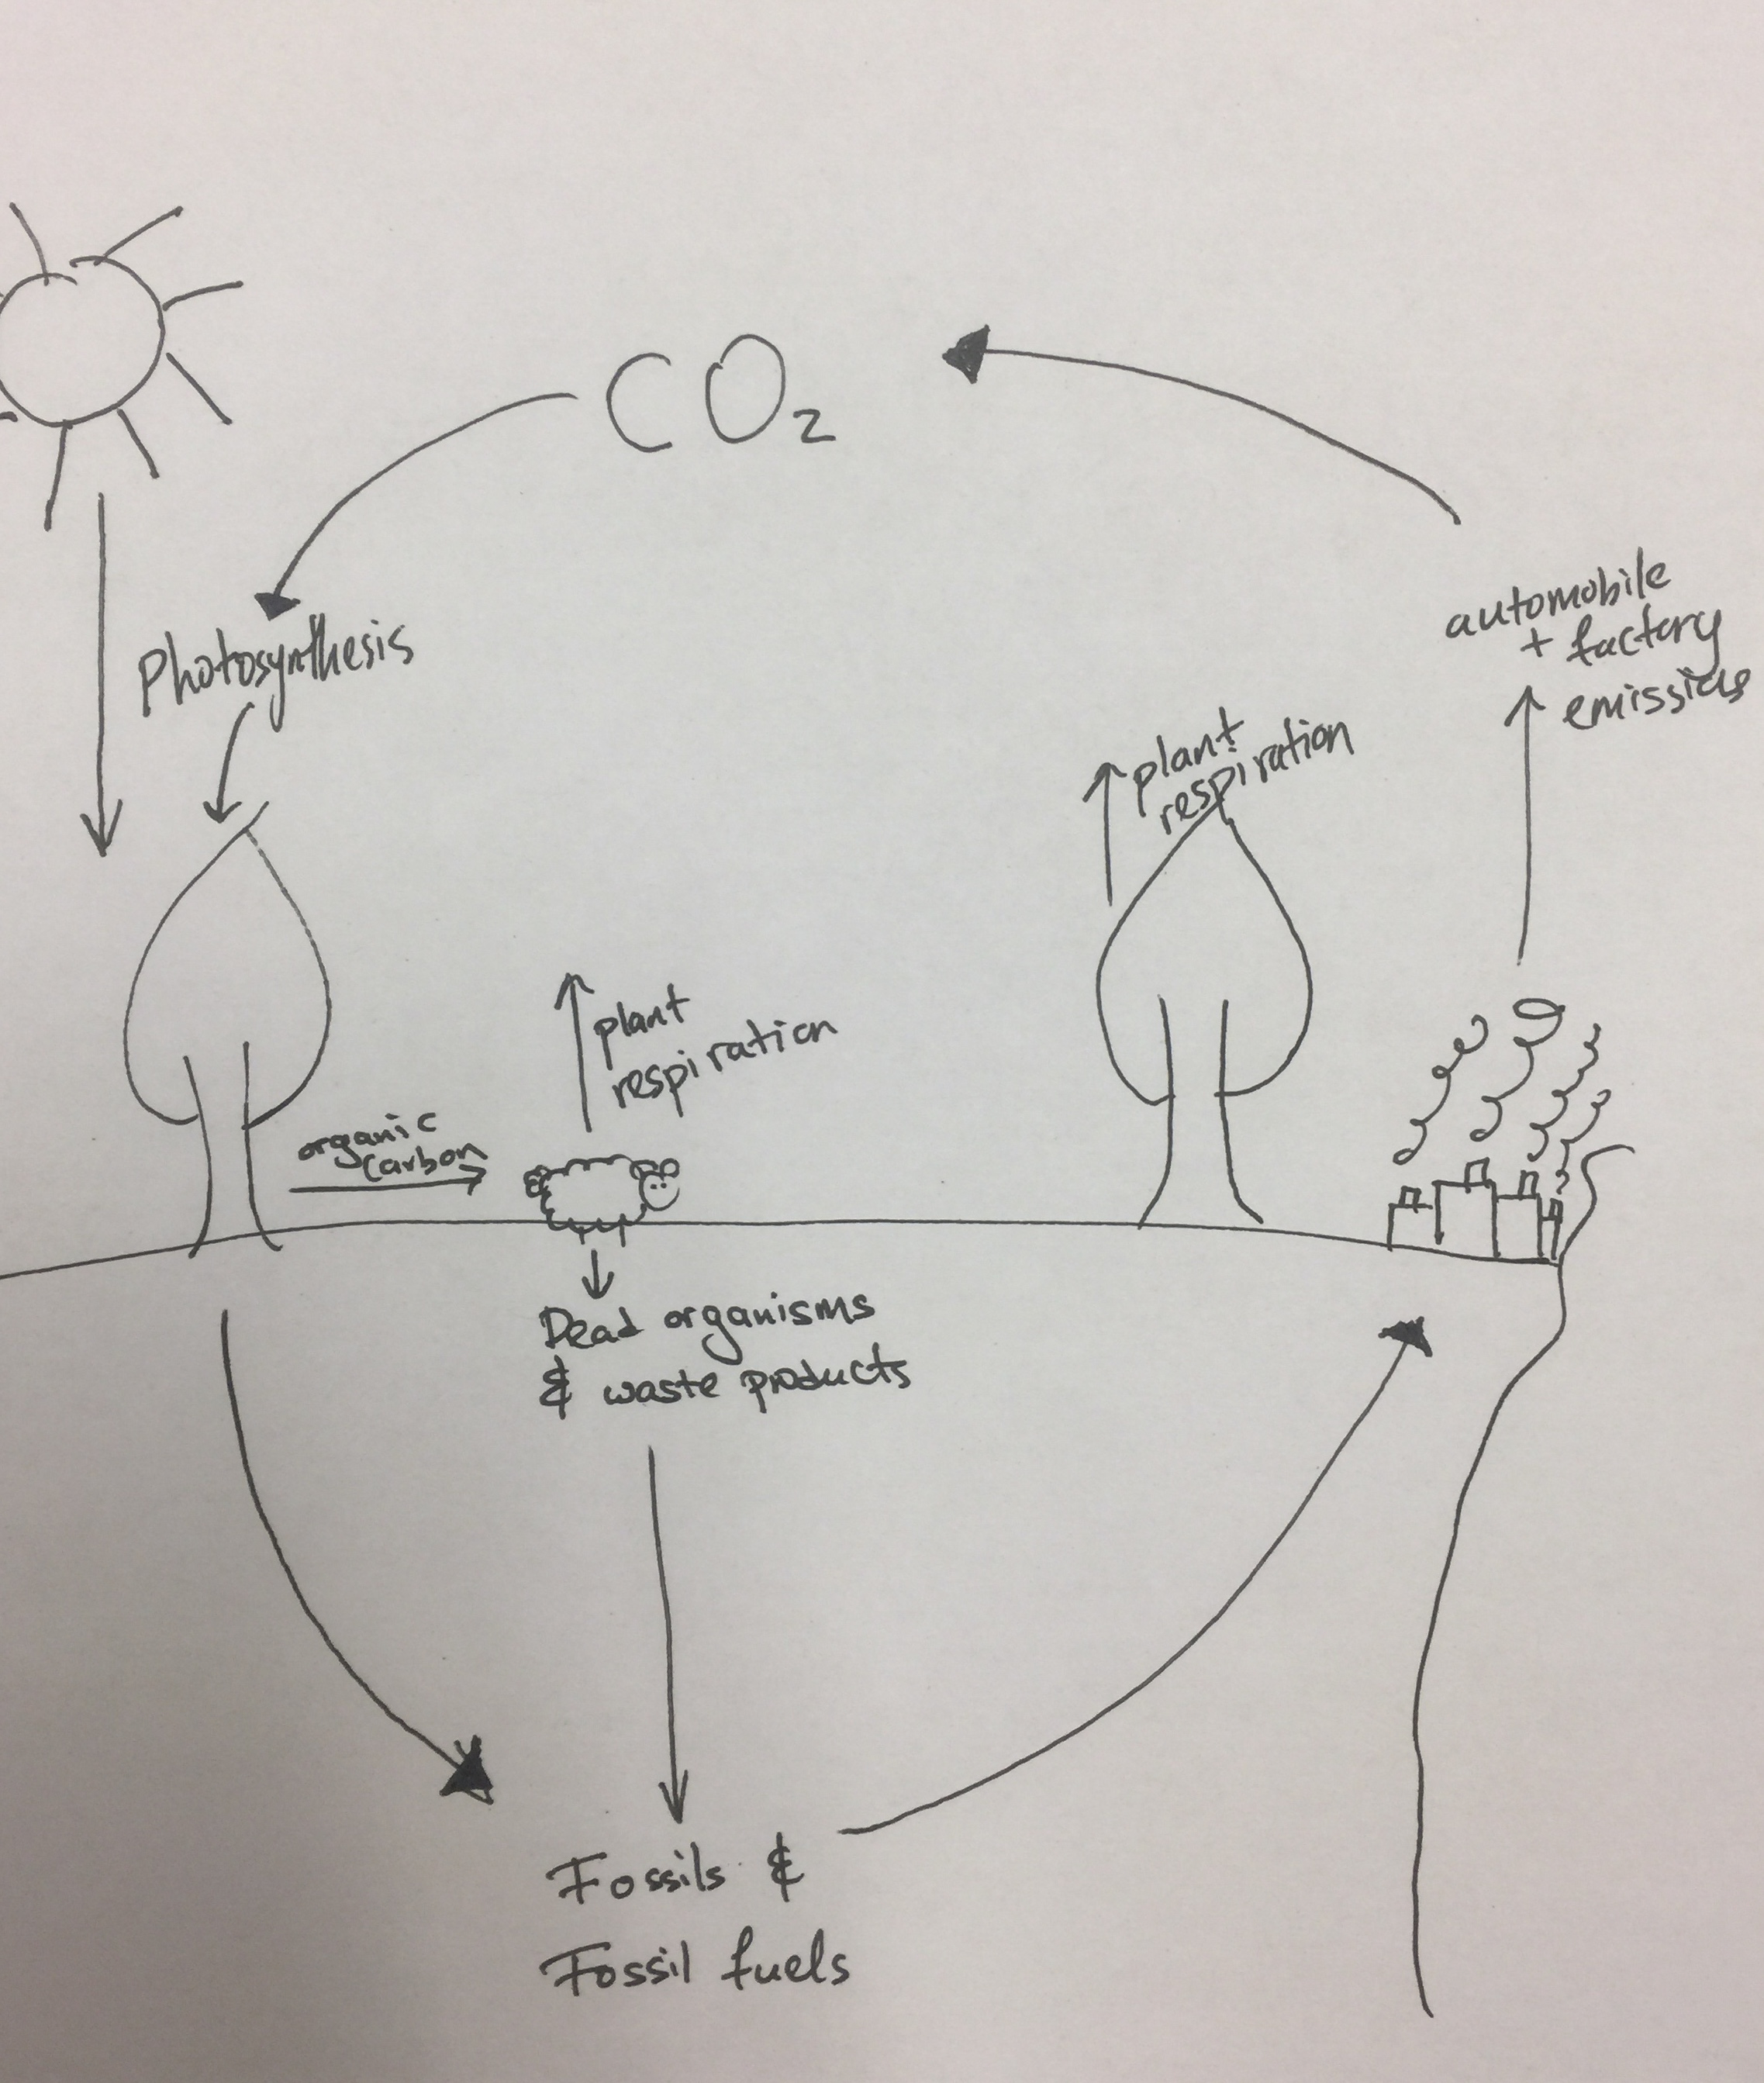 CO2
Photosynthesis
automobile
+ factory
emissions
plant
respiration
plant
respiration
organic
carbon
Dead organisms
& waste products
Fossils &
Fossil fuels